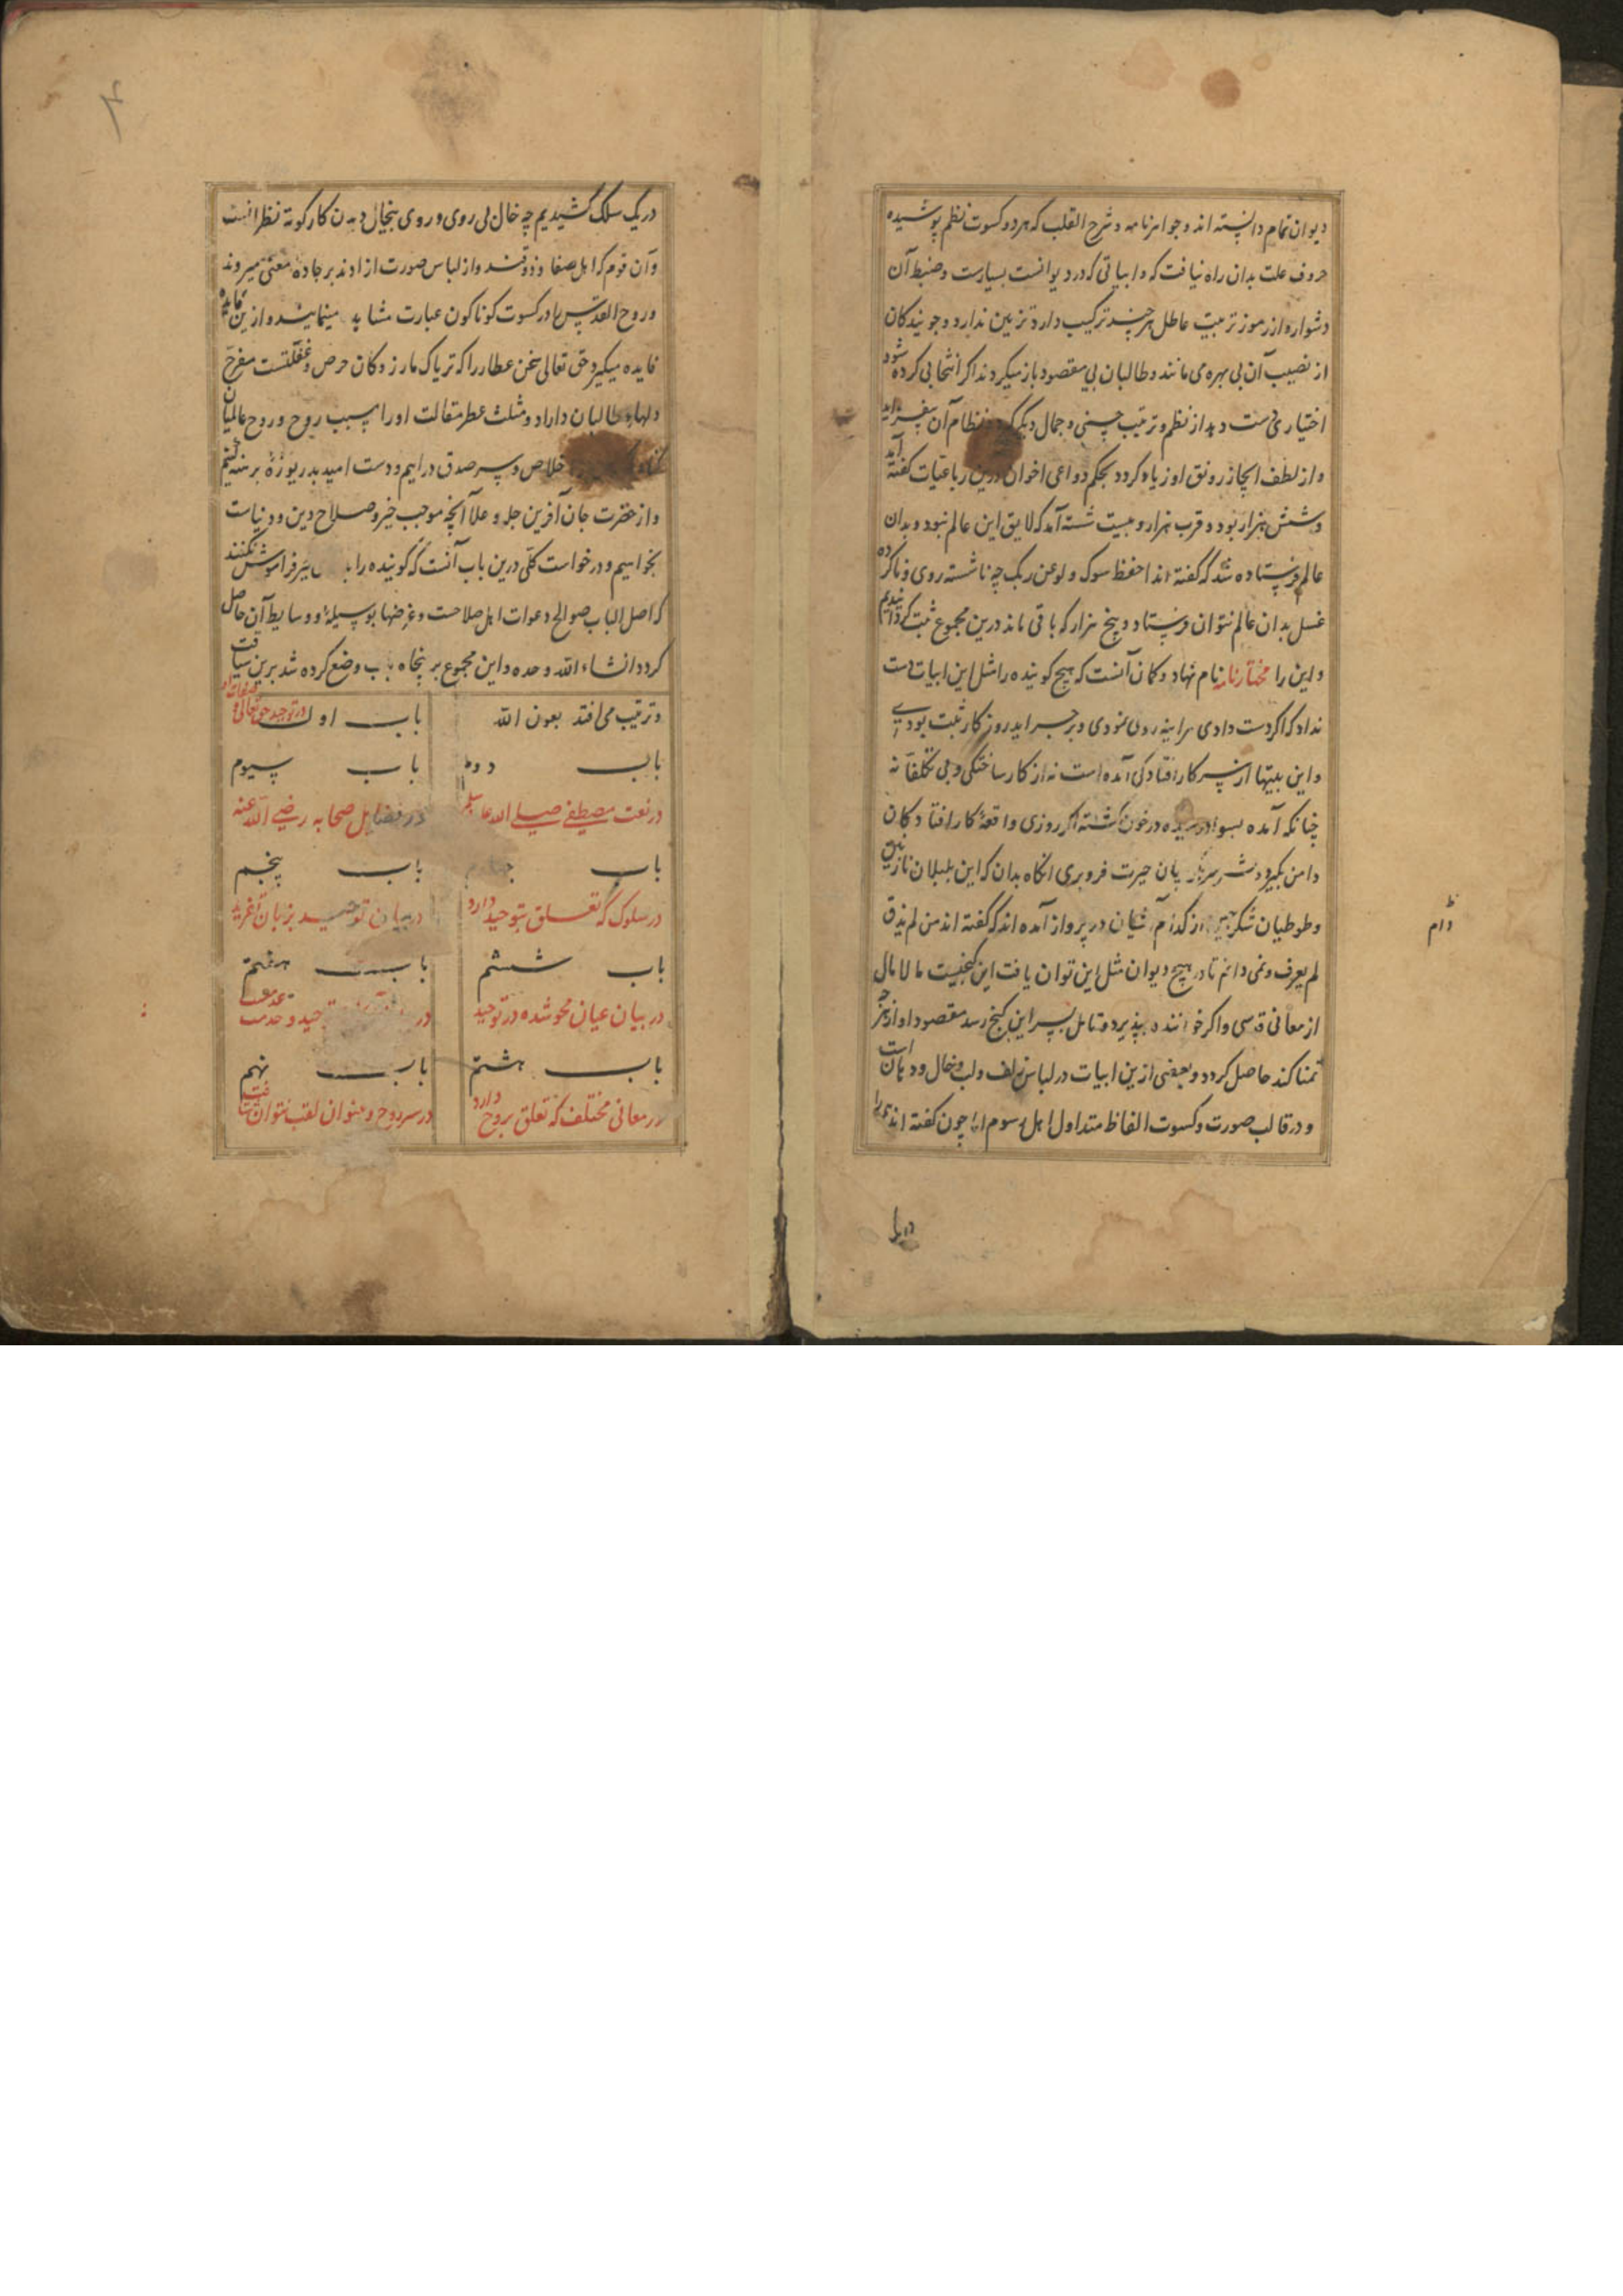 دیوان تمام دانسته اند و جواهرنامه و شرح القلب که هر دو کسوت نظم پوشیده
حروف علت بدان راه نیافت که و ابیاتی که در دیوانست بسیارست و ضبط آن
دشوار و از رموز تربیت عاطل هر چند ترکیب دارد تزیین ندارد و جویندکان
از نصیب آن بی بهره‌ی مانند و طالبان بی مقصود باز میکردند اکر انتخابی کرده شود
اختیاری دست دهد از نظم و ترتیب حسنی و جمال دیکر کیرد و نظام آن بیفزاید
و از لطف ایجاز رونق او زیاد کردد بحکم دواعی اخوان درین رباعیات کفته آید
و شش هزار بود و قرب هزار و بیست شسته آمد که لایق این عالم نبود و بدان
عالم فرستاده شد که کفته اند احفظ سرک ولو عن ربک چه ناشسته روی و ناکرده
غسل بدان عالم نتوان فرستاد و پنج هزار که باقی ماند درین مجموع ثبت کردانیدیم
و این را مختارنامه نام نهاد و کمان آنست که هیچ کوینده را مثل این ابیات دست
نداد که اکر دست دادی هراینه روی نمودی و بر جراید روزکار ثبت بودی
و این بیتها از سر کار افتادکی آمده است نه از کار ساختکی و بی تکلفانه
چنانکه آمده بسواد رسیده در خون کشته اکر روزی واقعهٔ کار افتادکان
دامن بکیرد و سر در کریبان حیرت فرو بری انکاه بدان که این بلبلان نازنین
و طوطیان شکرچین از کدام آشیان در پرواز آمده اند که کفته اند من لم یذق
لم یعرف و نمی دانم تا در هیچ دیوان مثل این توان یافت این کنجیست مالامال
از معانی قدسی و اکر خواننده بپذیرد و تامل بسر این کنج رسد مقصود او از هر چه
تمنا کند حاصل کردد و بعضی ازین ابیات در لباس زلف و لب و خال و دهان است
و در قالب صورت و کسوت الفاظ متداول اهل رسوم اما چون کفته اند همه را
در یک
دام
در یک سلک کشیدیم چه خال بی روی و روی بیخال دیدن کار کوته نظرانست
و آن قوم که اهل صفا و ذوقند و از لباس صورت ازادند بر جاده معنی میروند
و روح القدس را در کسوت کوناکون عبارت مشاهده مینمایند و ازین مایده
فایده میکیرند حق تعالی سخن عطار را که تریاک مار زدکان حرص و غفلتست مفرح
دلهای طالبان داراد و مثلث عطر مقالت او را سبب روح و روح عالمیان
خلاص و بسر صدق دراییم و دست امید بدریوزهٔ برهنه کنیم
و از حضرت جان آفرین جل و علا آنچه موجب خیر و صلاح دین و دنیاست
بخواهیم و درخواست کلی درین باب آنست که کوینده را فراموش نکنند
که اصل الباب صوالح دعوات اهل صلاحست و غرضها بوسیلهٔ و وسایط آن حاصل
کردد انشاء الله وحده و این مجموع بر پنجاه باب وضع کرده شد برین سیاقت
و ترتیب می افتد بعون الله
باب اول در توحید حق تعالی و صفات او
باب دوم
باب سیوم
در نعت مصطفی صلی الله علیه سلم
در فضایل صحابه رضی الله عنه
باب چهارم
باب پنجم
در سلوک که تعلق بتوحید دارد
در بیان توحید بزبان تفرید
باب ششم
باب هفتم
در بیان عیان محو شده در توحید
باب هشتم
باب نهم
در معانی مختلف که تعلق بروح دارد